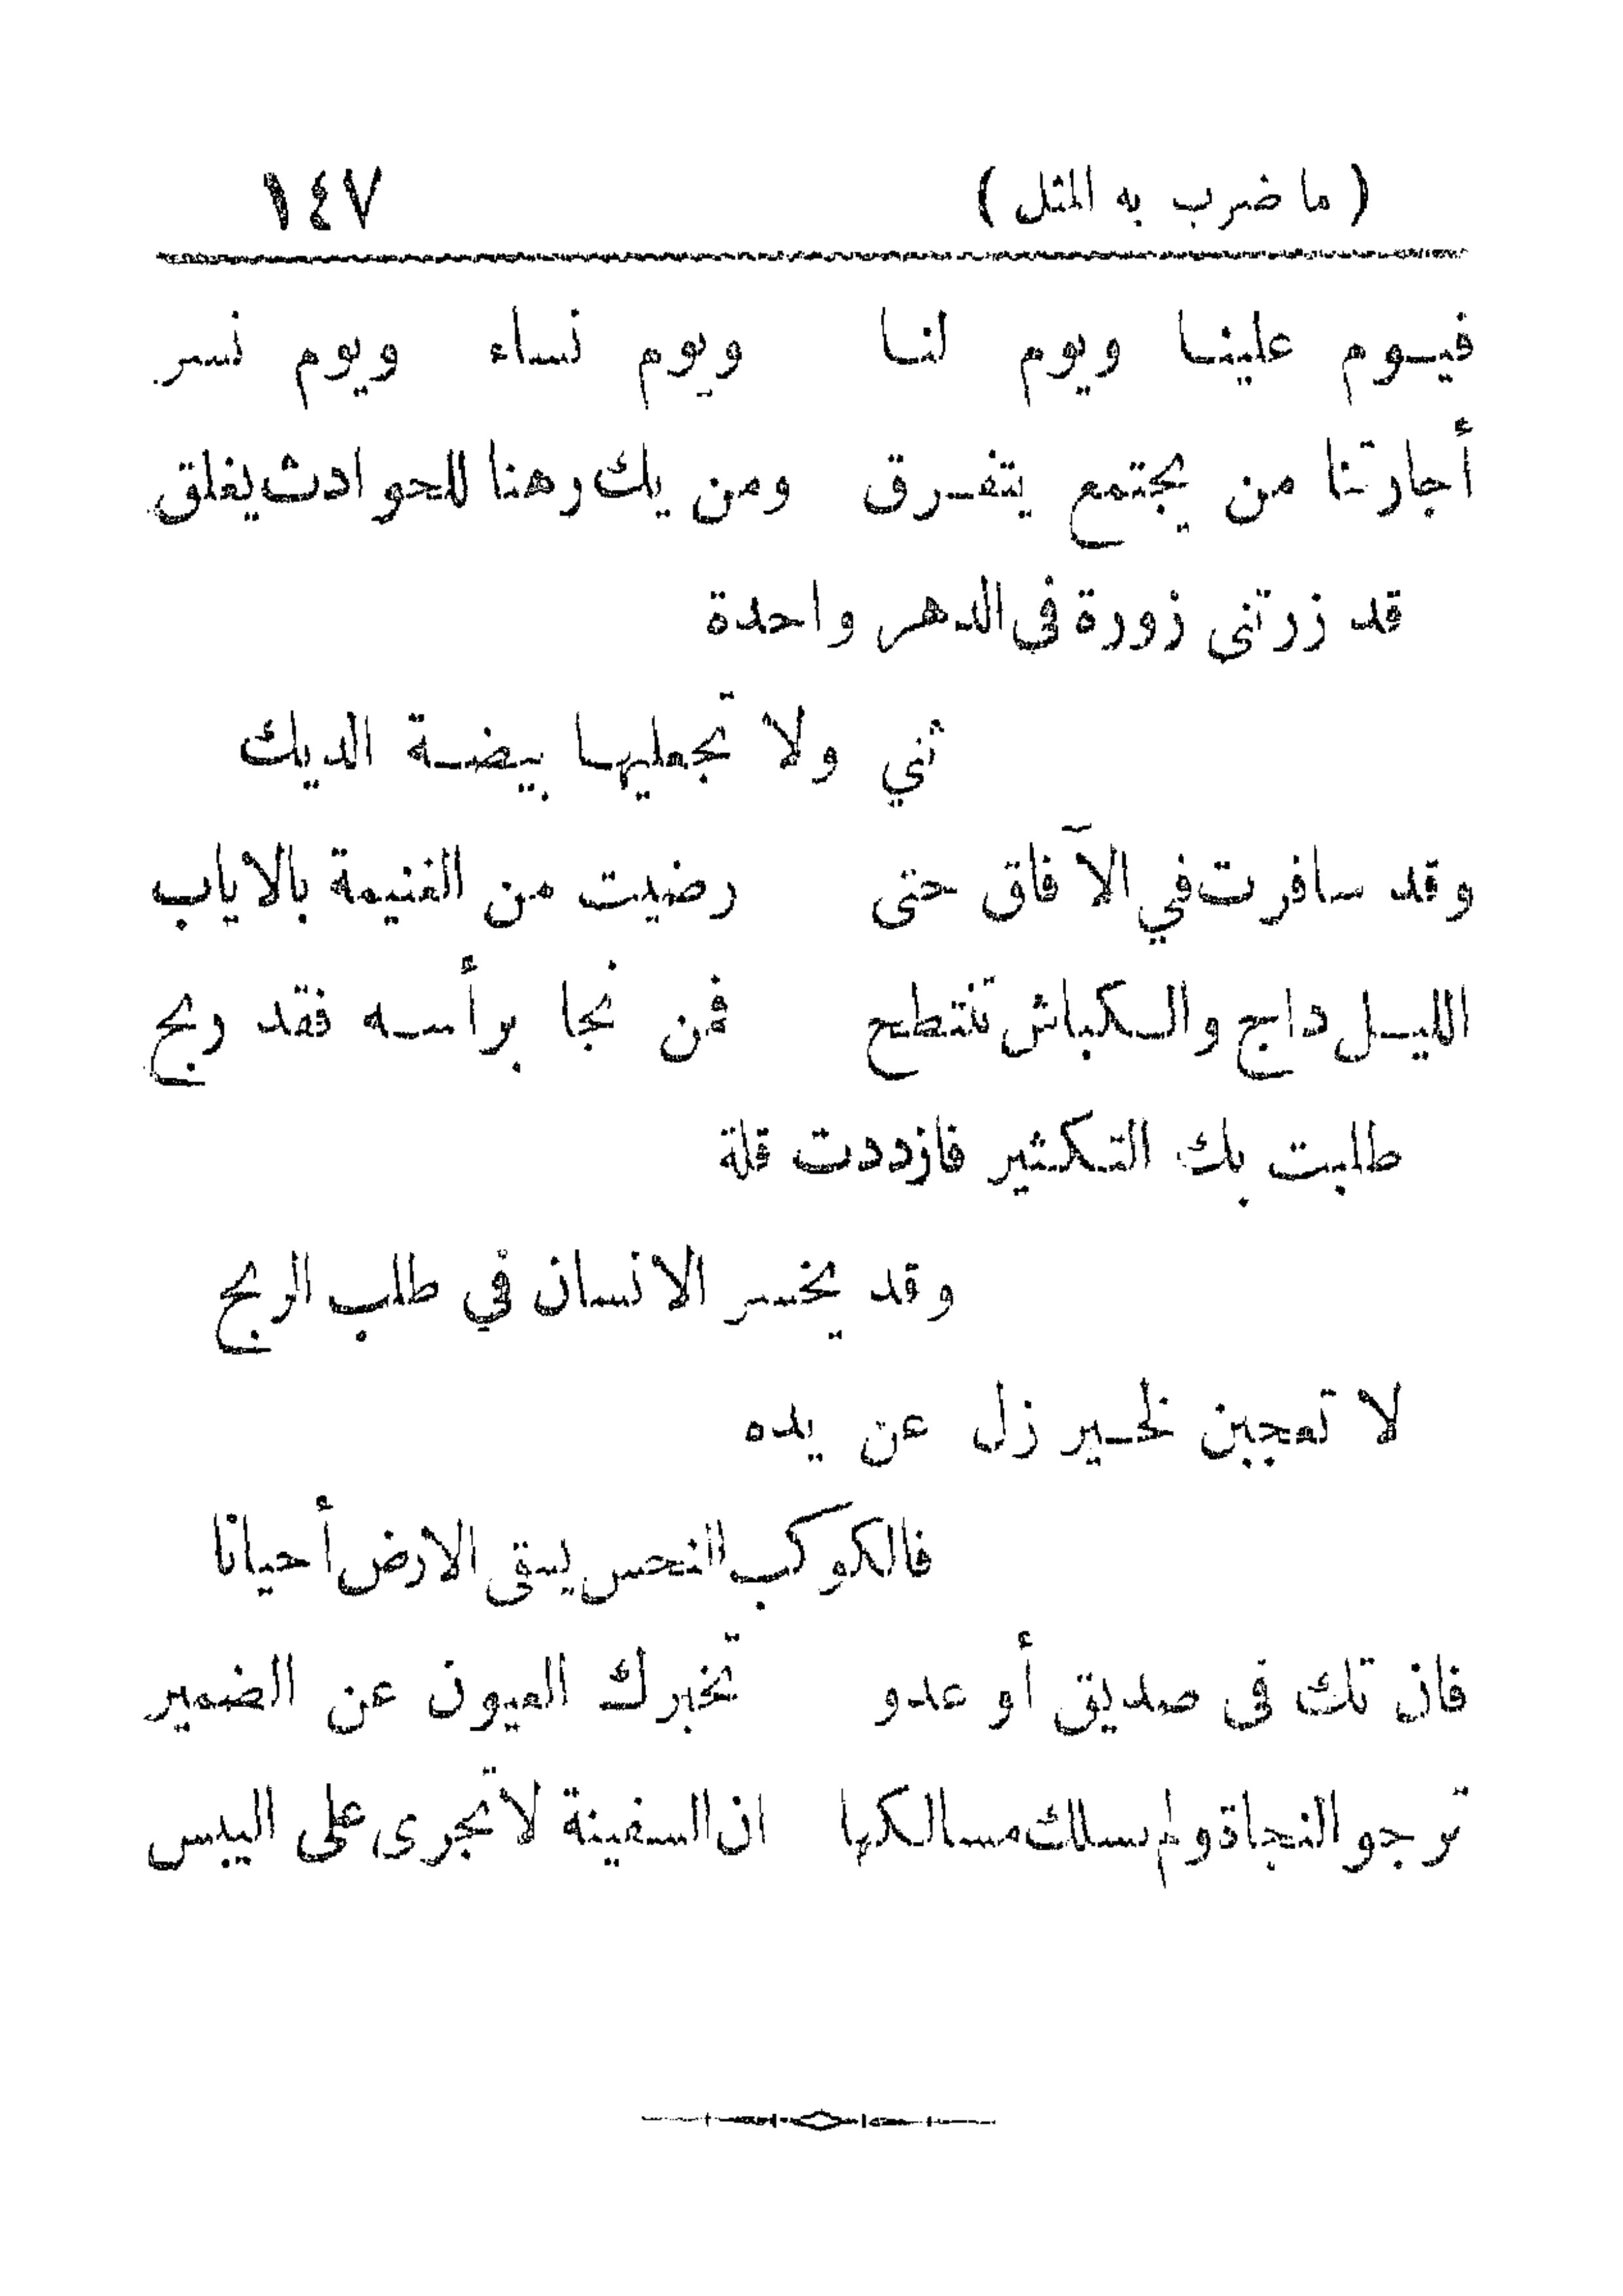 ( ما ضرب به المثل ) ١٤٧
فيوم علينا ويوم لنا ويوم نساء ويوم نسر
أجارتنا من يجتمع يتفرق ومن يك رهنا للحوادث يغلق
قد زرتنى زورة فى الدهر واحدة
ثني ولا تجعليها بيضة الديك
وقد سافرت في الآفاق حتى رضيت من الغنيمة بالاياب
الليل داج والكباش تنتطح فمن نجا برأسه فقد ربح
طلبت بك التكثير فازددت قلة
وقد يخسر الانسان في طلب الربح
لا تعجبن لخير زل عن يده
فالكوكب النحس يسقى الارض أحيانا
فان تك فى صديق أو عدو تخبرك العيون عن الضمير
ترجو النجاة ولم تسلك مسالكها ان السفينة لا تجرى على اليبس